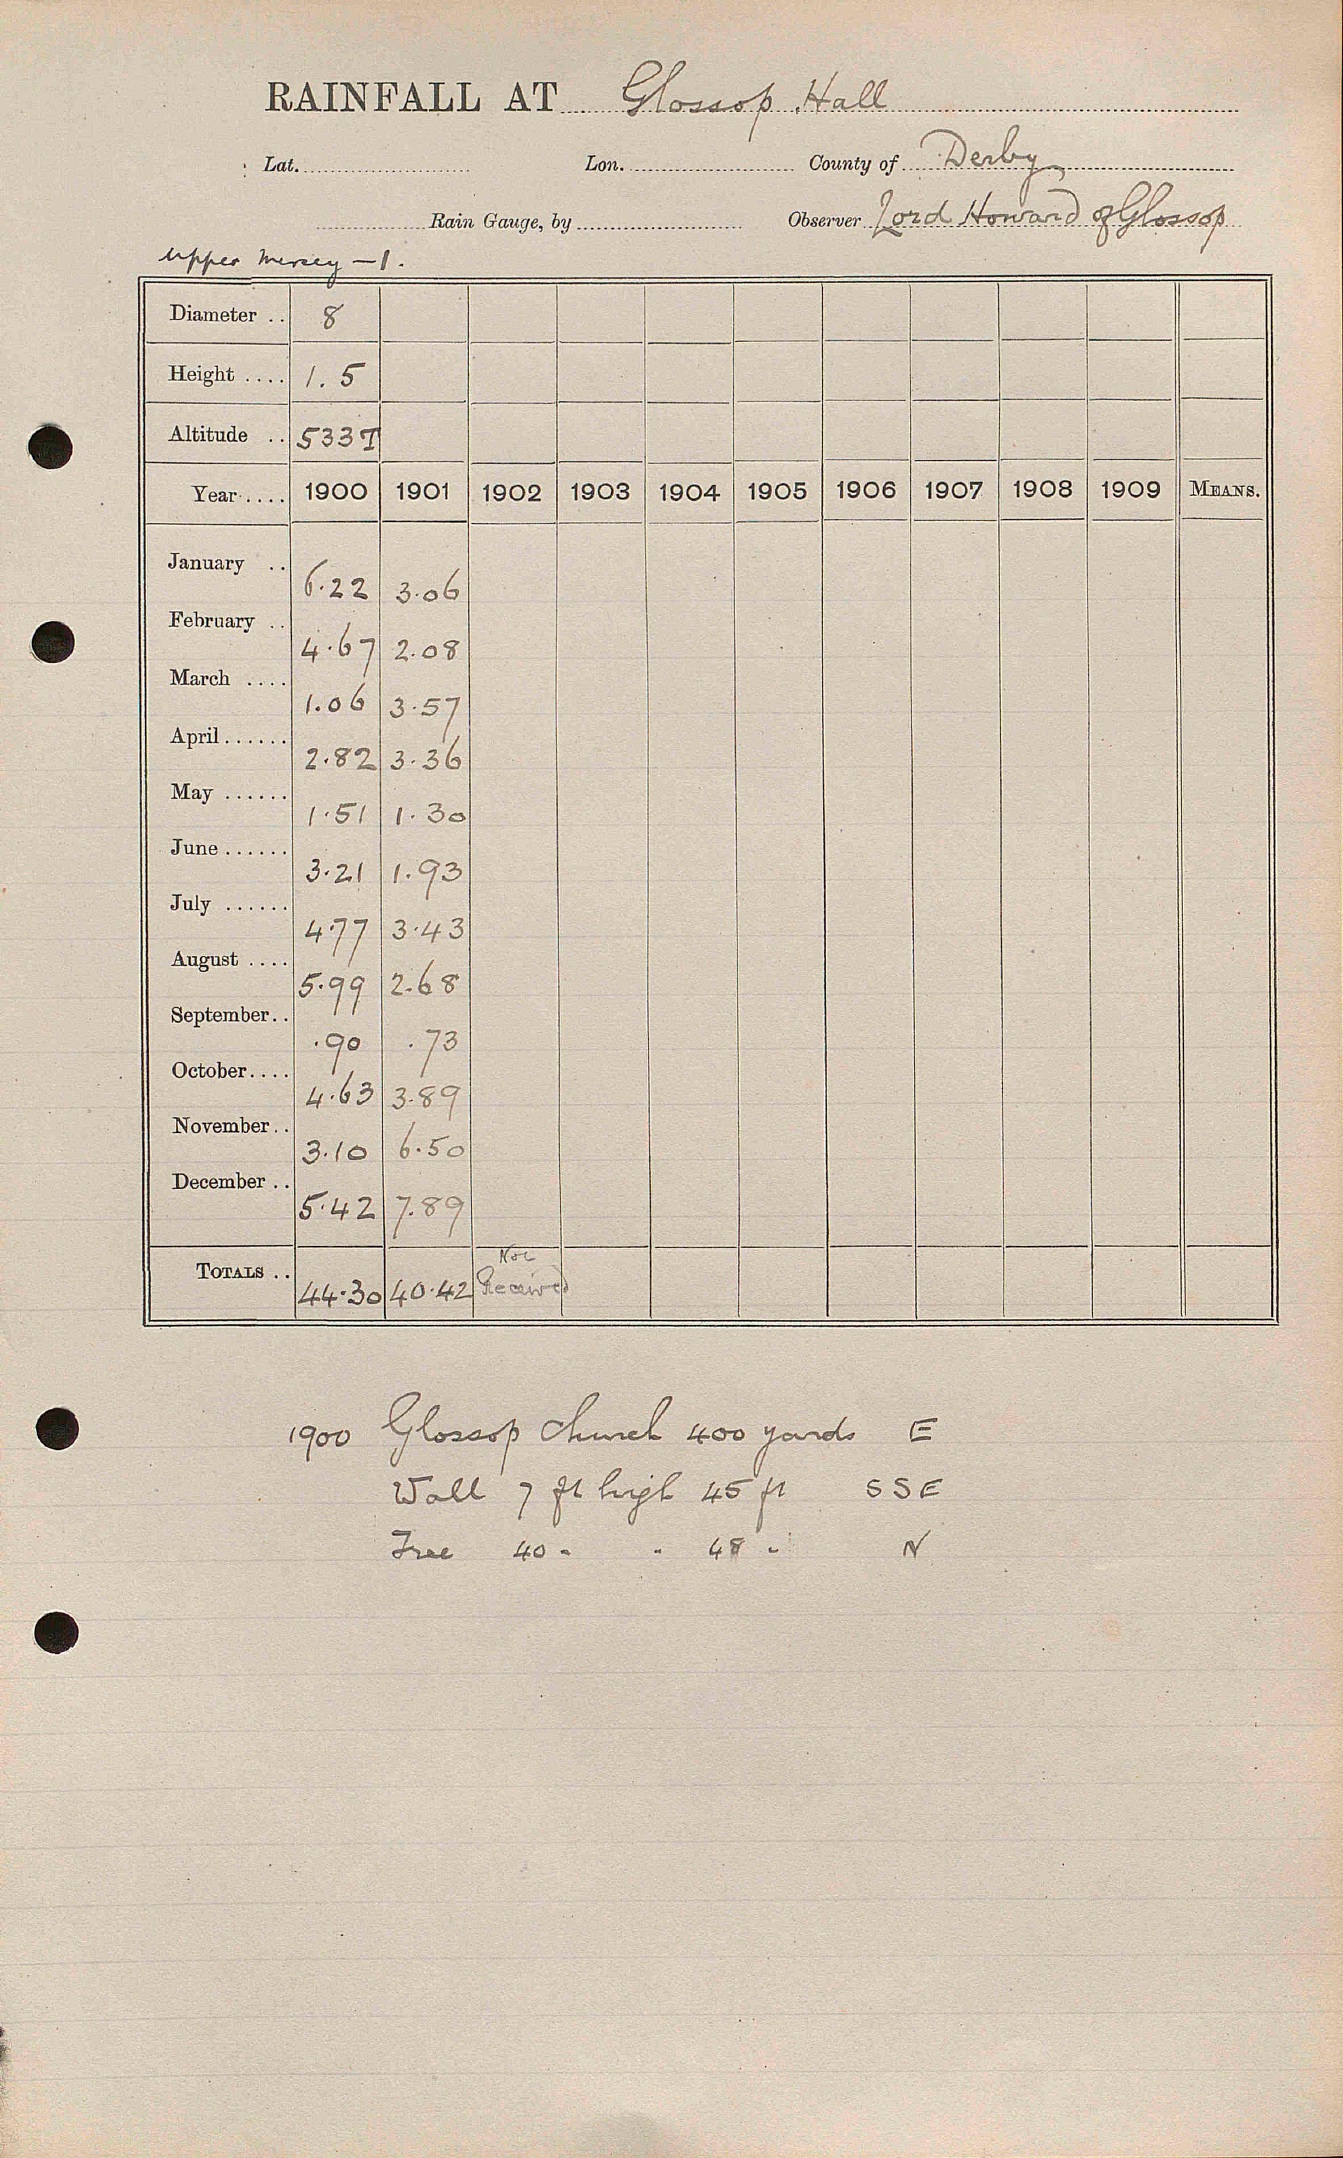 RAINFALL AT Glossop Hall
Lat. Lon. County of Derby
Rain Gauge, by Observer Lord Howard of Glossop
Upper Mersey — 1.
Diameter .. 8
Height .... 1.5
Altitude .. 533T
Year .... 1900 1901 1902 1903 1904 1905 1906 1907 1908 1909 MEANS.
January .. 6.22 3.06
February .. 4.67 2.08
March .... 1.06 3.57
April ...... 2.82 3.36
May ...... 1.51 1.30
June ...... 3.21 1.93
July ...... 4.77 3.43
August .... 5.99 2.68
September .. .90 .73
October .... 4.63 3.89
November .. 3.10 6.50
December .. 5.42 7.89
TOTALS .. 44.30 40.42 Not Received
1900 Glossop Church 400 yards E
Wall 7 ft high 45 ft SSE
Tree 40 " " 48 " N